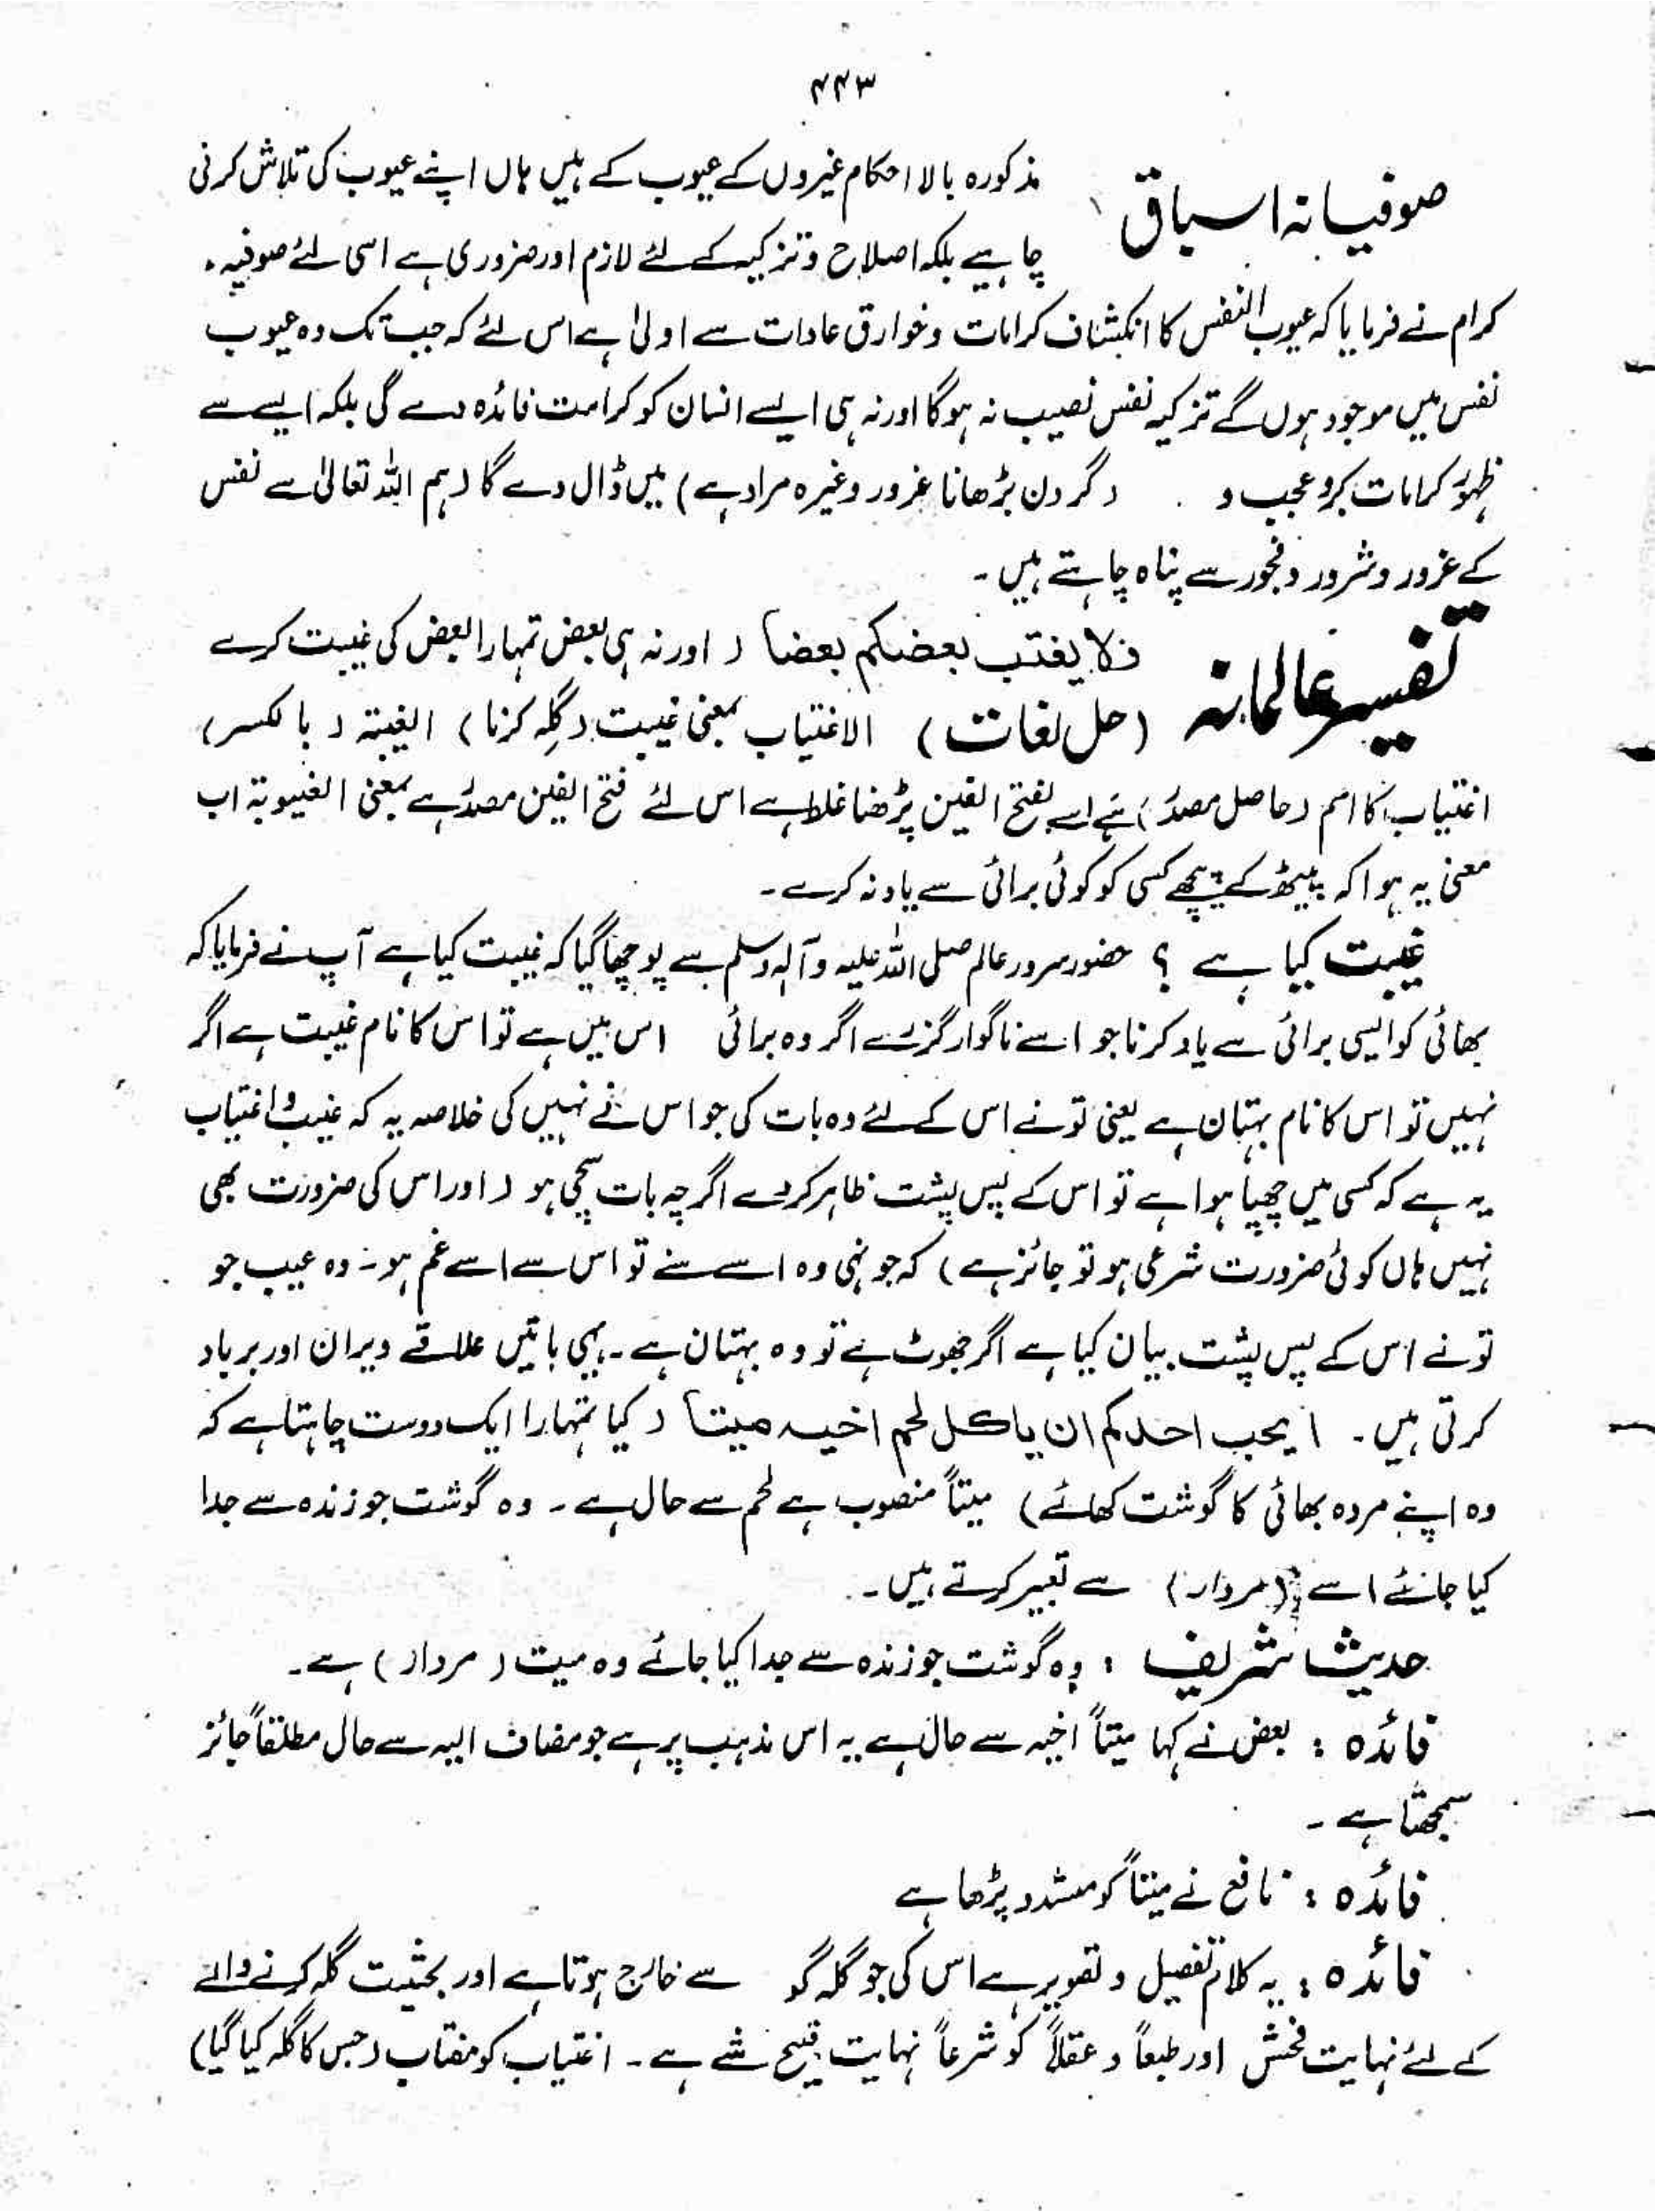 ۴۴۳
صوفیانہ اسباق مذکورہ بالا احکام غیروں کے عیوب کے ہیں ہاں اپنے عیوب کی تلاش کرنی
چاہیے بلکہ اصلاح و تزکیہ کے لئے لازم اور ضروری ہے اسی لئے صوفیہ
کرام نے فرمایا کہ عیوب النفس کا انکشاف کرامات و خوارق عادات سے اولیٰ ہے اس لئے کہ جب تک وہ عیوب
نفس میں موجود ہوں گے تزکیہ نفس نصیب نہ ہوگا اور نہ ہی ایسے انسان کو کرامت فائدہ دے گی بلکہ ایسے سے
ظہور کرامات کبر و عجب و (گردن بڑھانا غرور وغیرہ مراد ہے) میں ڈال دے گا (ہم اللہ تعالیٰ سے نفس
کے غرور و شرور و فجور سے پناہ چاہتے ہیں ۔
تفسیر عالمانہ فلا یغتب بعضکم بعضا ( اور نہ ہی بعض تمہارا بعض کی غیبت کرے
(حل لغات) الاغتیاب بمعنی غیبت (گلہ کرنا) الغیبتہ ( بالکسر )
اغتیاب کا اسم (حاصل مصدر) ہے اسے بفتح الغین پڑھنا غلط ہے اس لئے فتح الغین مصدر ہے بمعنی الغیبوبتہ اب
معنی یہ ہوا کہ پیٹھ کے پیچھے کسی کو کوئی برائی سے یاد نہ کرے ۔
غیبت کیا ہے ؟ حضور سرور عالم صلی اللہ علیہ وآلہ وسلم سے پوچھا گیا کہ غیبت کیا ہے آپ نے فرمایا کہ
بھائی کو ایسی برائی سے یاد کرنا جو اسے ناگوار گزرے اگر وہ برائی اس میں ہے تو اس کا نام غیبت ہے اگر
نہیں تو اس کا نام بہتان ہے یعنی تو نے اس کے لئے وہ بات کی جو اس نے نہیں کی خلاصہ یہ کہ غیبت و اغتیاب
یہ ہے کہ کسی میں چھپا ہوا ہے تو اس کے پس پشت ظاہر کردے اگرچہ بات سچی ہو ( اور اس کی ضرورت بھی
نہیں ہاں کوئی ضرورت شرعی ہو تو جائز ہے ) کہ جونہی وہ اسے سنے تو اس سے اسے غم ہو ۔ وہ عیب جو
تو نے اس کے پس پشت بیان کیا ہے اگر جھوٹ ہے تو وہ بہتان ہے ۔ یہی باتیں علاقے ویران اور برباد
کرتی ہیں ۔ ایحب احدکم ان یاکل لحم اخیہ میتا ( کیا تمہارا ایک دوست چاہتا ہے کہ
وہ اپنے مردہ بھائی کا گوشت کھائے ) میتاً منصوب ہے لحم سے حال ہے ۔ وہ گوشت جو زندہ سے جدا
کیا جائے اسے (مردار) سے تعبیر کرتے ہیں ۔
حدیث شریف : وہ گوشت جو زندہ سے جدا کیا جائے وہ میت ( مردار ) ہے ۔
فائدہ : بعض نے کہا میتاً اخیہ سے حال ہے یہ اس مذہب پر ہے جو مضاف الیہ سے حال مطلقاً جائز
سمجھتا ہے ۔
فائدہ : نافع نے میتاً کو مشدد پڑھا ہے
فائدہ : یہ کلام تفصیل و تصویر ہے اس کی جو گلہ گو سے خارج ہوتا ہے اور بحیثیت گلہ کرنے والے
کے لئے نہایت فحش اور طبعاً و عقلاً کو شرعاً نہایت قبیح شے ہے ۔ اغتیاب کو مغتاب (جس کا گلہ کیا گیا)